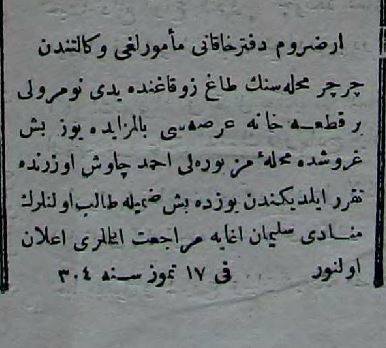 ارضروم دفترخاقانى مأمورلغى وكالتندن
چرچر محله‌سنك طاغ زوقاغنده يدى نومرولى
بر قطعه خانه عرصه‌سى بالمزايده يوز بش
غروشده محلهٔ مزبوره‌لى احمد چاوش اوزرنده
تقرر ايلديكندن يوزده بش ضميله طالب اولنلرك
منادى سليمان اغايه مراجعت ايتملرى اعلان
اولنور فى ١٧ تموز سنه ٣٠٤